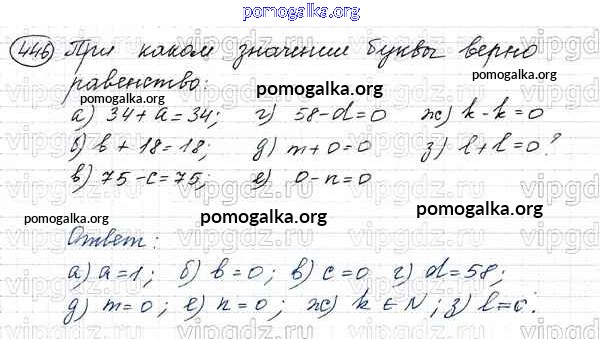 pomogalka.org
446 При каком значении буквы верно
равенство:
pomogalka.org
а) 34+a=34; г) 58-d=0 ж) k-k=0
б) b+18=18; д) m+0=0 з) l+l=0?
в) 75-c=75; е) 0-n=0
pomogalka.org pomogalka.org pomogalka.org
Ответ:
pomogalka.org
а) a=1; б) b=0; в) c=0 г) d=58;
д) m=0; е) n=0; ж) k ∈ N; з) l=
pomogalka.org
vipgdz.ru